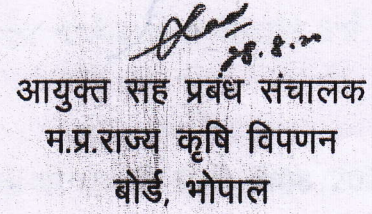 आयुक्त सह प्रबंध संचालक
म.प्र.राज्य कृषि विपणन
बोर्ड, भोपाल